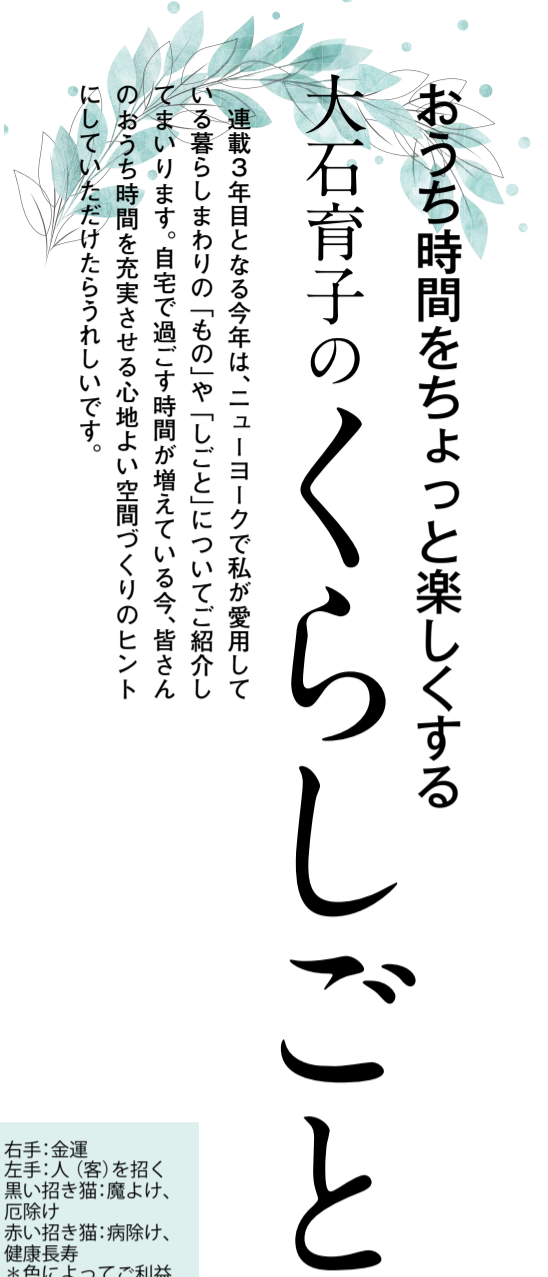 おうち時間をちょっと楽しくする
大石育子のくらしごと
連載3年目となる今年は、ニューヨークで私が愛用して
いる暮らしまわりの「もの」や「しごと」についてご紹介し
てまいります。自宅で過ごす時間が増えている今、皆さん
のおうち時間を充実させる心地よい空間づくりのヒント
にしていただけたらうれしいです。
右手：金運
左手：人（客）を招く
黒い招き猫：魔よけ、
厄除け
赤い招き猫：病除け、
健康長寿
＊色によってご利益